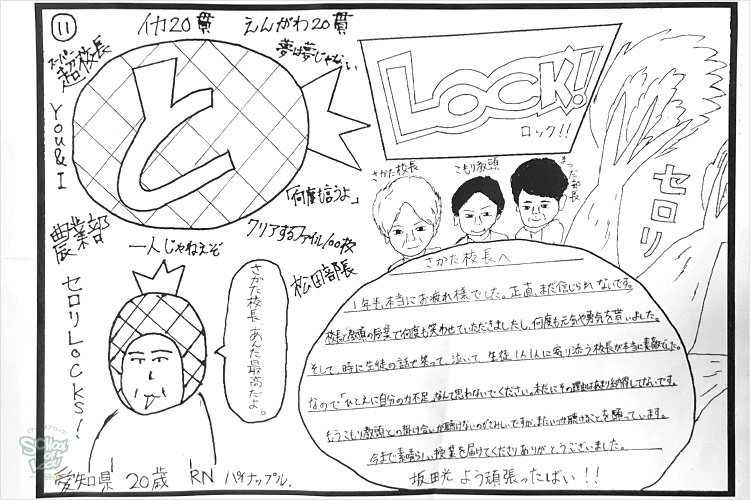 ⑪
イカ20貫 えんがわ20貫
夢は夢じゃない
スーパー
超校長
You&I
と
LOCK!
ロック!!
さかた校長
こもり教頭
まつだ部長
セロリ
「何度も言うよ」
クリアするファイル100枚
松田部長
農業部
一人じゃねえぞ
セロリLOCKS!
さかた校長 あんた最高だよ。
さかた校長へ
1年半、本当にお疲れ様でした。正直、まだ信じられないです。
校長と教頭の授業で何度も笑わせていただきましたし、何度も元気や勇気を貰いました。
そして、時に生徒の話で笑って、泣いて、生徒1人1人に寄り添う校長が本当に素敵でした。
なので「ひとえに自分の力不足」なんて思わないでください。未だにその理由はあまり納得してないです。
もうこもり教頭との掛け合いが聴けないのがさみしいですが、またいつか聴けることを願っています。
今まで素晴らしい授業を届けてくださりありがとうございました。
坂田光 よう頑張ったばい!!
愛知県 20歳 RN パイナップル.
SCHOOL OF LOCK!